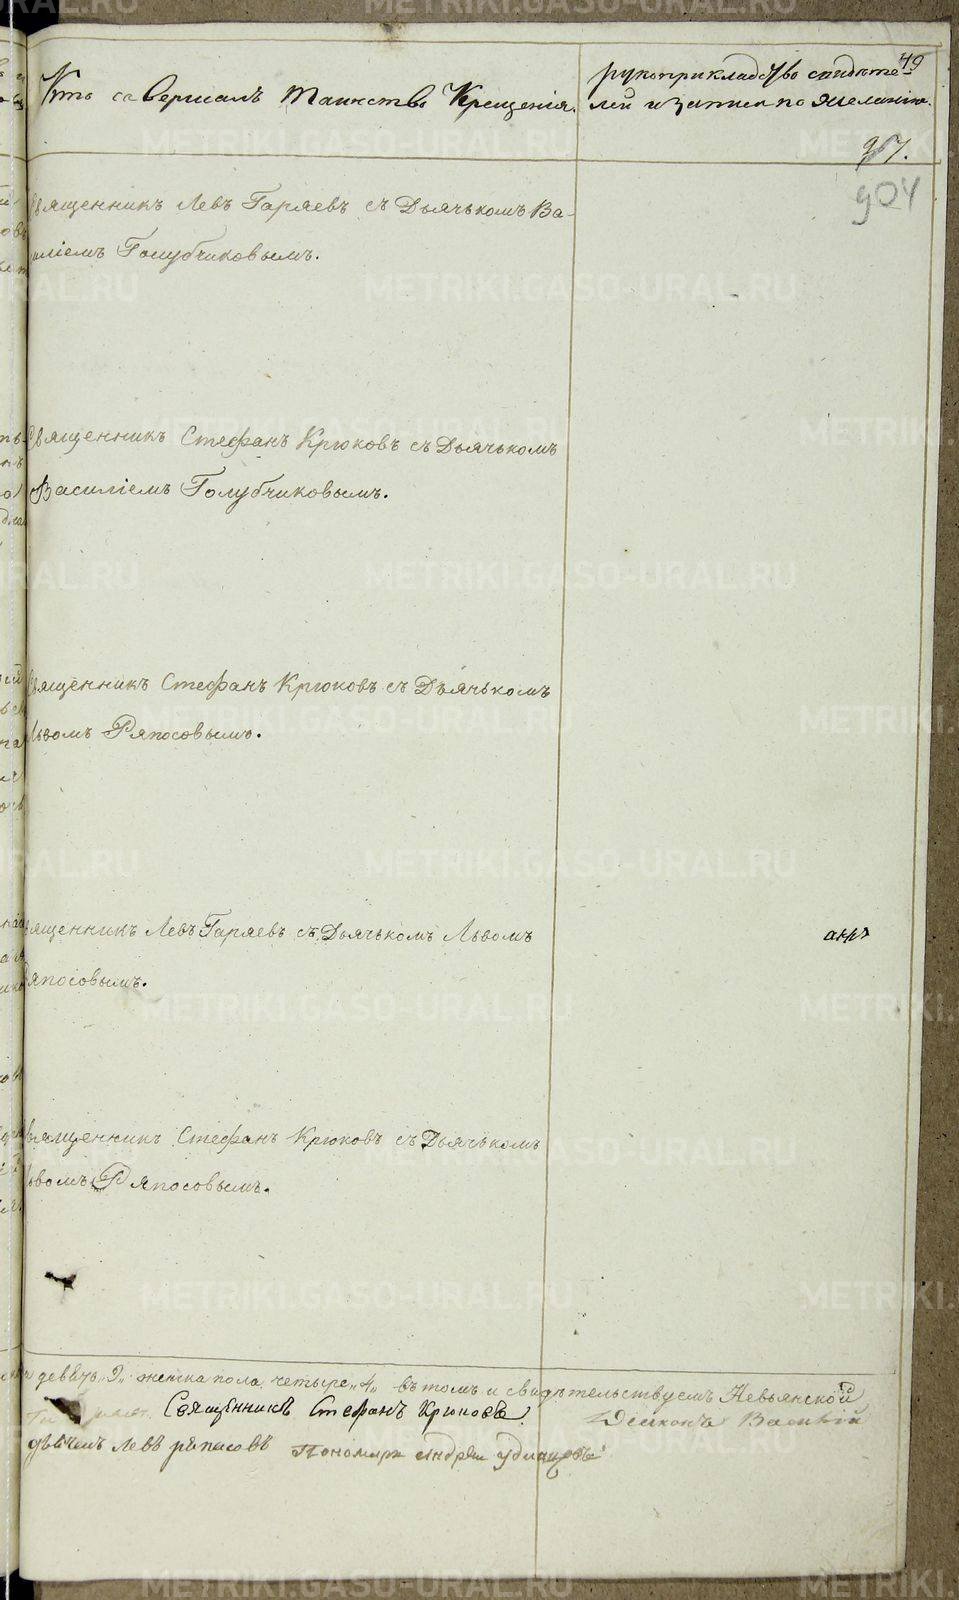 Кто савершалъ Таинство Крещенія.
рукоприкладство свидѣте-
лей и записи по желанію.
49
904
священникъ Левъ Гаряевъ съ Дьячькомъ Ва-
силіемъ Голубчиковымъ.
Священникъ Стефанъ Крюковъ съ Дьячькомъ
Василіемъ Голубчиковымъ.
Священникъ Стефанъ Крюковъ съ Дьячькомъ
Львомъ Ряпосовымъ.
Священникъ Левъ Гаряевъ съ Дьячькомъ Львомъ
Ряпосовымъ.
Священникъ Стефанъ Крюковъ съ Дьячькомъ
Львомъ Ряпосовымъ.
девять „9„ женска пола четыре „4„ въ томъ и свидѣтельствуемъ Невьянской
Священникъ Стефанъ Крюковъ. Діаконъ Василій
дьячекъ Левъ ряпасовъ Пономарь Андрей удинцовъ
METRIKI.GASO-URAL.RU